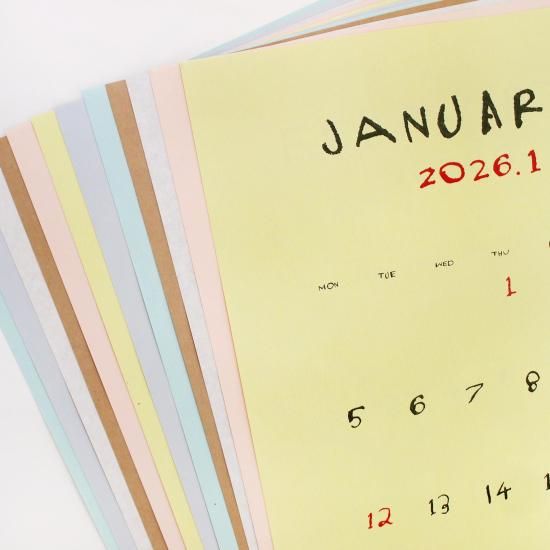 JANUAR
2026.1
MON TUE WED THU
1
5 6 7 8
12 13 14